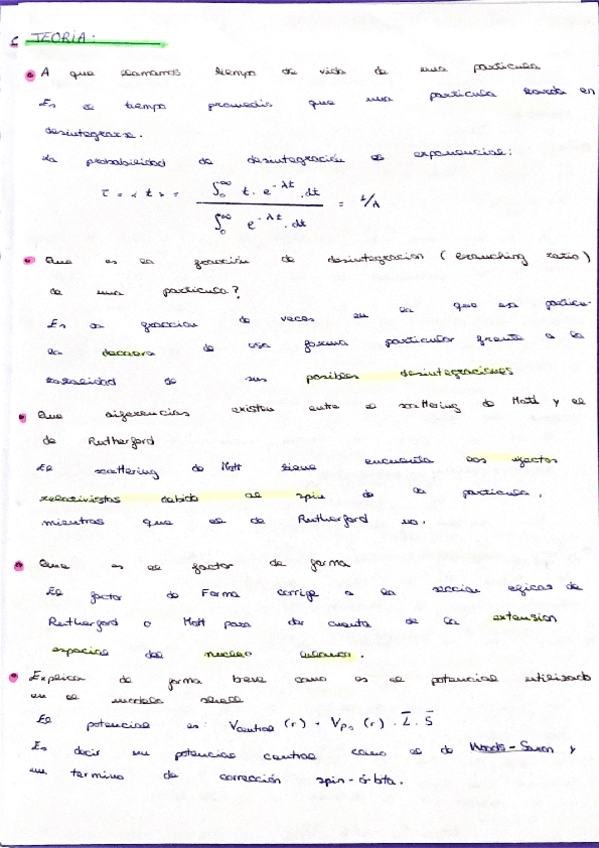 TEORIA:
A que llamamos tiempo de vida de una particula
Es el tiempo promedio que una particula tarda en
desintegrarse.
La probabilidad de desintegración es exponencial:
τ = < t > = ∫₀^∞ t · e^{-λt} · dt / ∫₀^∞ e^{-λt} · dt = 1/λ
Que es la fracción de desintegracion (branching ratio)
de una particula?
Es la fraccion de veces en la que esa particu-
la decaera de esa forma particular frente a la
totalidad de sus posibles desintegraciones
Que diferencias existen entre el scattering de Mott y el
de Rutherford
El scattering de Mott tiene encuenta los efectos
relativistas debido al spin de la particula,
mientras que el de Rutherford no.
Que es el factor de forma
El factor de Forma corrige a la seccion eficaz de
Rutherford o Mott para dar cuenta de la extension
espacial del nucleo
Explica de forma breve como es el potencial utilizado
en el modelo shell
El potencial es: Vcentral (r) + V (r) · L̄ · S̄
Es decir un potencial central como el de Woods-Saxon y
un termino de corrección spin-órbita.